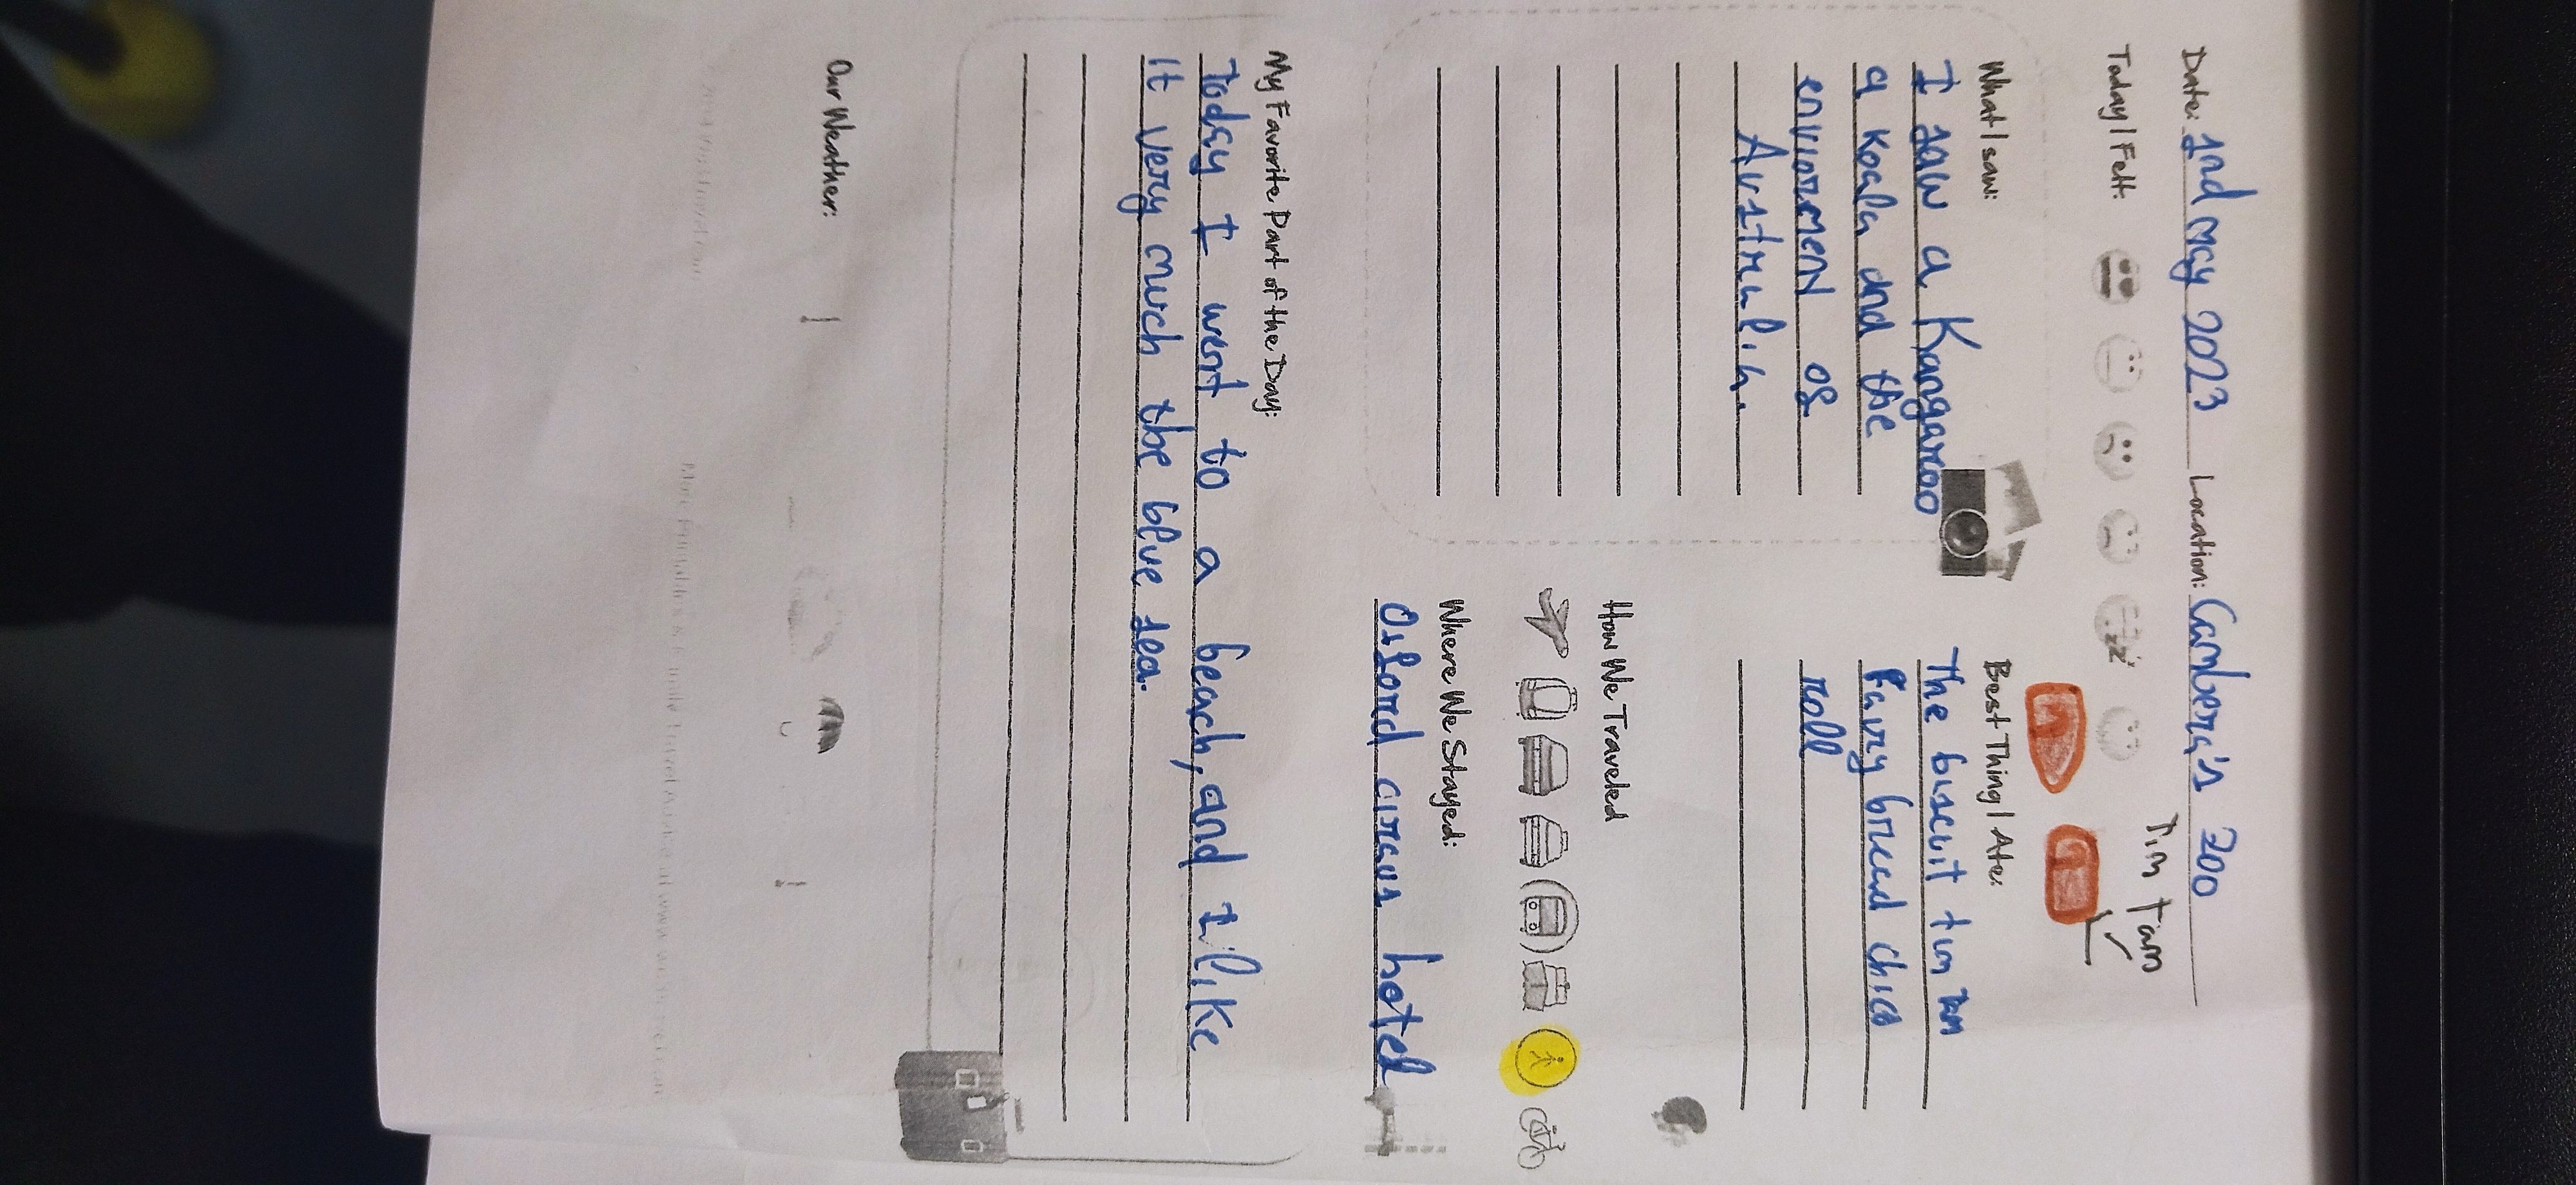 Date: 2nd may 2023 Location: Cambera's zoo
Today I Felt:
Tim Tam
What I saw:
I saw a Kangaroo
a koala and the
enviorment of
Australia.
Best Thing I Ate:
The biscuit tim tam
Fairy bread chico
roll
How We Traveled
Where We Stayed:
Oxford circus hotel
My Favorite Part of the Day:
Today I went to a beach, and I like
it very much the blue sea.
Our Weather: